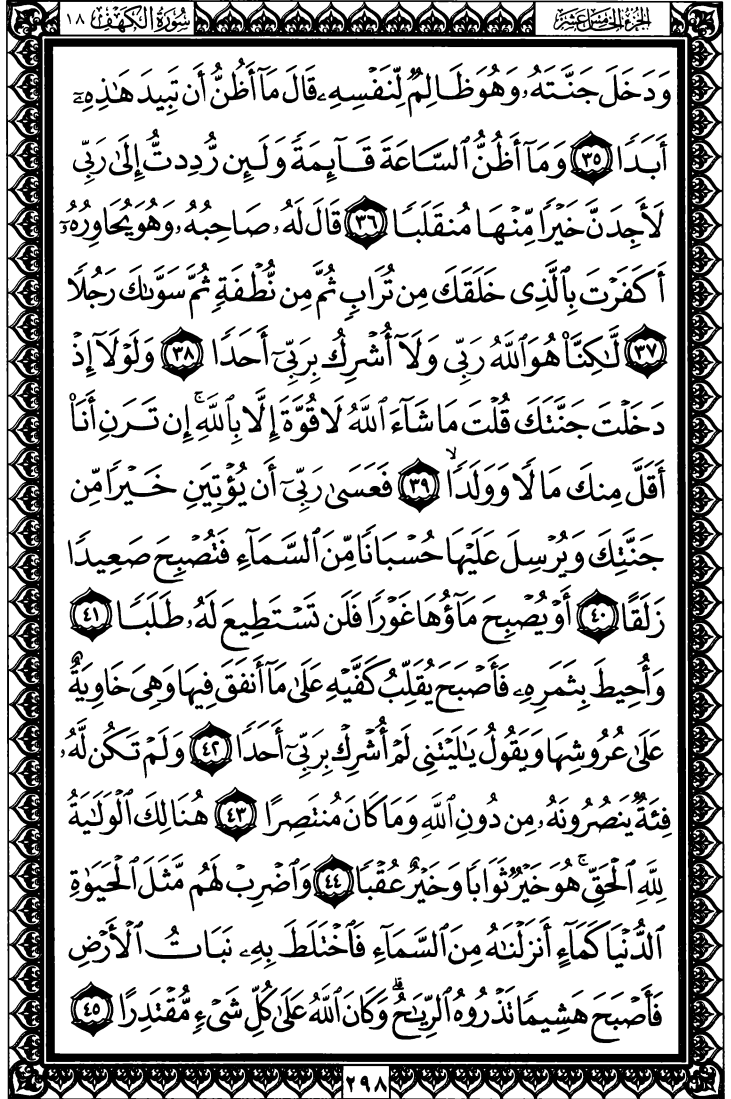 سُورَةُ الكَهْفِ ١٨
الجُزْءُ الخَامِسَ عَشَرَ
وَدَخَلَ جَنَّتَهُۥ وَهُوَ ظَالِمٌ لِّنَفْسِهِۦ قَالَ مَآ أَظُنُّ أَن تَبِيدَ هَٰذِهِۦٓ
أَبَدًا ٣٥ وَمَآ أَظُنُّ ٱلسَّاعَةَ قَآئِمَةً وَلَئِن رُّدِدتُّ إِلَىٰ رَبِّى
لَأَجِدَنَّ خَيْرًا مِّنْهَا مُنقَلَبًا ٣٦ قَالَ لَهُۥ صَاحِبُهُۥ وَهُوَ يُحَاوِرُهُۥٓ
أَكَفَرْتَ بِٱلَّذِى خَلَقَكَ مِن تُرَابٍ ثُمَّ مِن نُّطْفَةٍ ثُمَّ سَوَّىٰكَ رَجُلًا
٣٧ لَّٰكِنَّا۠ هُوَ ٱللَّهُ رَبِّى وَلَآ أُشْرِكُ بِرَبِّىٓ أَحَدًا ٣٨ وَلَوْلَآ إِذْ
دَخَلْتَ جَنَّتَكَ قُلْتَ مَا شَآءَ ٱللَّهُ لَا قُوَّةَ إِلَّا بِٱللَّهِ ۚ إِن تَرَنِ أَنَا۠
أَقَلَّ مِنكَ مَالًا وَوَلَدًا ۙ ٣٩ فَعَسَىٰ رَبِّىٓ أَن يُؤْتِيَنِ خَيْرًا مِّن
جَنَّتِكَ وَيُرْسِلَ عَلَيْهَا حُسْبَانًا مِّنَ ٱلسَّمَآءِ فَتُصْبِحَ صَعِيدًا
زَلَقًا ٤٠ أَوْ يُصْبِحَ مَآؤُهَا غَوْرًا فَلَن تَسْتَطِيعَ لَهُۥ طَلَبًا ٤١
وَأُحِيطَ بِثَمَرِهِۦ فَأَصْبَحَ يُقَلِّبُ كَفَّيْهِ عَلَىٰ مَآ أَنفَقَ فِيهَا وَهِىَ خَاوِيَةٌ
عَلَىٰ عُرُوشِهَا وَيَقُولُ يَٰلَيْتَنِى لَمْ أُشْرِكْ بِرَبِّىٓ أَحَدًا ٤٢ وَلَمْ تَكُن لَّهُۥ
فِئَةٌ يَنصُرُونَهُۥ مِن دُونِ ٱللَّهِ وَمَا كَانَ مُنتَصِرًا ٤٣ هُنَالِكَ ٱلْوَلَٰيَةُ
لِلَّهِ ٱلْحَقِّ ۚ هُوَ خَيْرٌ ثَوَابًا وَخَيْرٌ عُقْبًا ٤٤ وَٱضْرِبْ لَهُم مَّثَلَ ٱلْحَيَوٰةِ
ٱلدُّنْيَا كَمَآءٍ أَنزَلْنَٰهُ مِنَ ٱلسَّمَآءِ فَٱخْتَلَطَ بِهِۦ نَبَاتُ ٱلْأَرْضِ
فَأَصْبَحَ هَشِيمًا تَذْرُوهُ ٱلرِّيَٰحُ ۗ وَكَانَ ٱللَّهُ عَلَىٰ كُلِّ شَىْءٍ مُّقْتَدِرًا ٤٥
٢٩٨